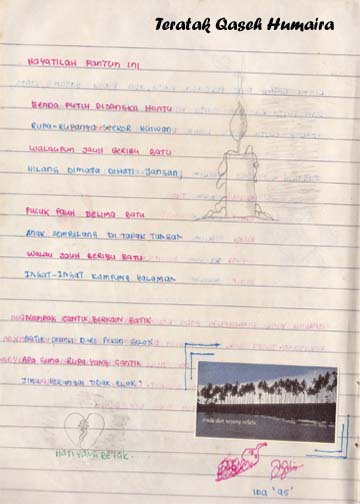 Teratak Qaseh Humaira
HAYATILAH PANTUN INI
BENDA PUTIH DISANGKA HANTU
RUPA-RUPANYA SEEKOR HAIWAN;
WALAUPUN JAUH BERIBU BATU
HILANG DIMATA DIHATI JANGAN;
PUCUK PAUH DELIMA BATU
ANAK SEMBILANG DI TAPAK TANGAN
WALAU JAUH BERIBU BATU
INGAT-INGAT KAMPUNG HALAMAN
NAMPAK CANTIK BERKAIN BATIK
BATIK DARI PEKAN
APA GUNA RUPA YANG CANTIK
JIKA TIDAK ELOK?
HATI YANG RETAK.
rindu dan sayang selalu